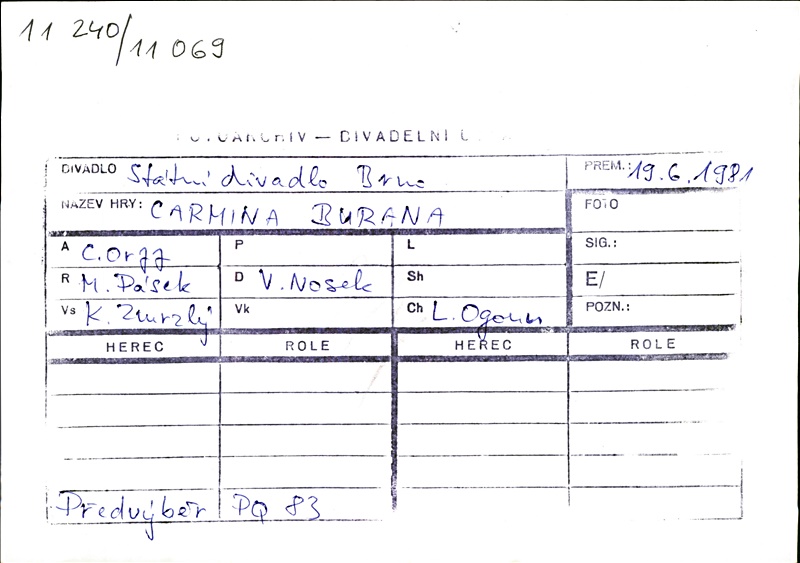 11 240/11 069
ARCHIV — DIVADELNÍ
DIVADLO Státní divadlo Brno PREM.: 19.6.1981
NÁZEV HRY: CARMINA BURANA FOTO
A C. Orff P L SIG.:
R M. Pásek D V. Nosek Sh E/
Vs K. Zmrzlý Vk Ch L. Ogoun POZN.:
HEREC ROLE HEREC ROLE
Předvýběr PQ 83